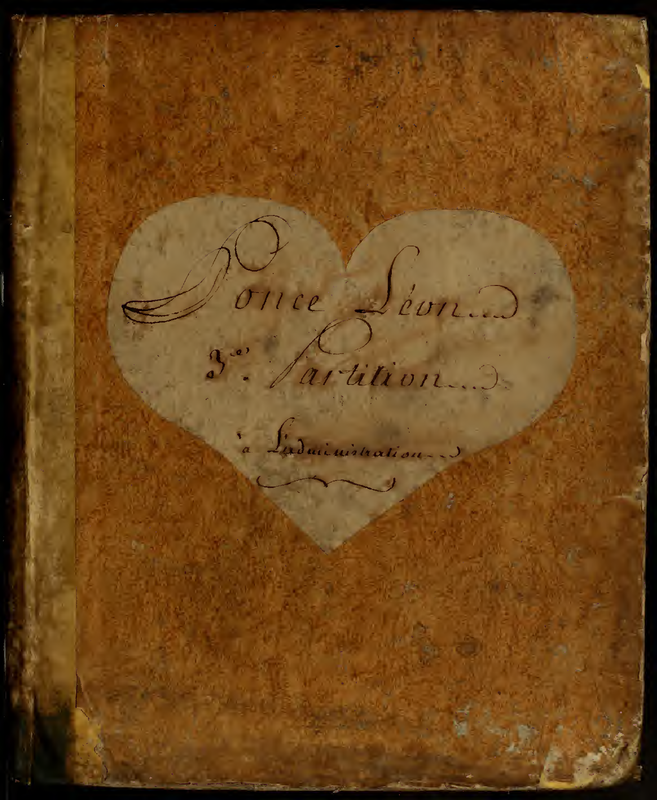 Ponce Léon
3.me Partition
à L'administration